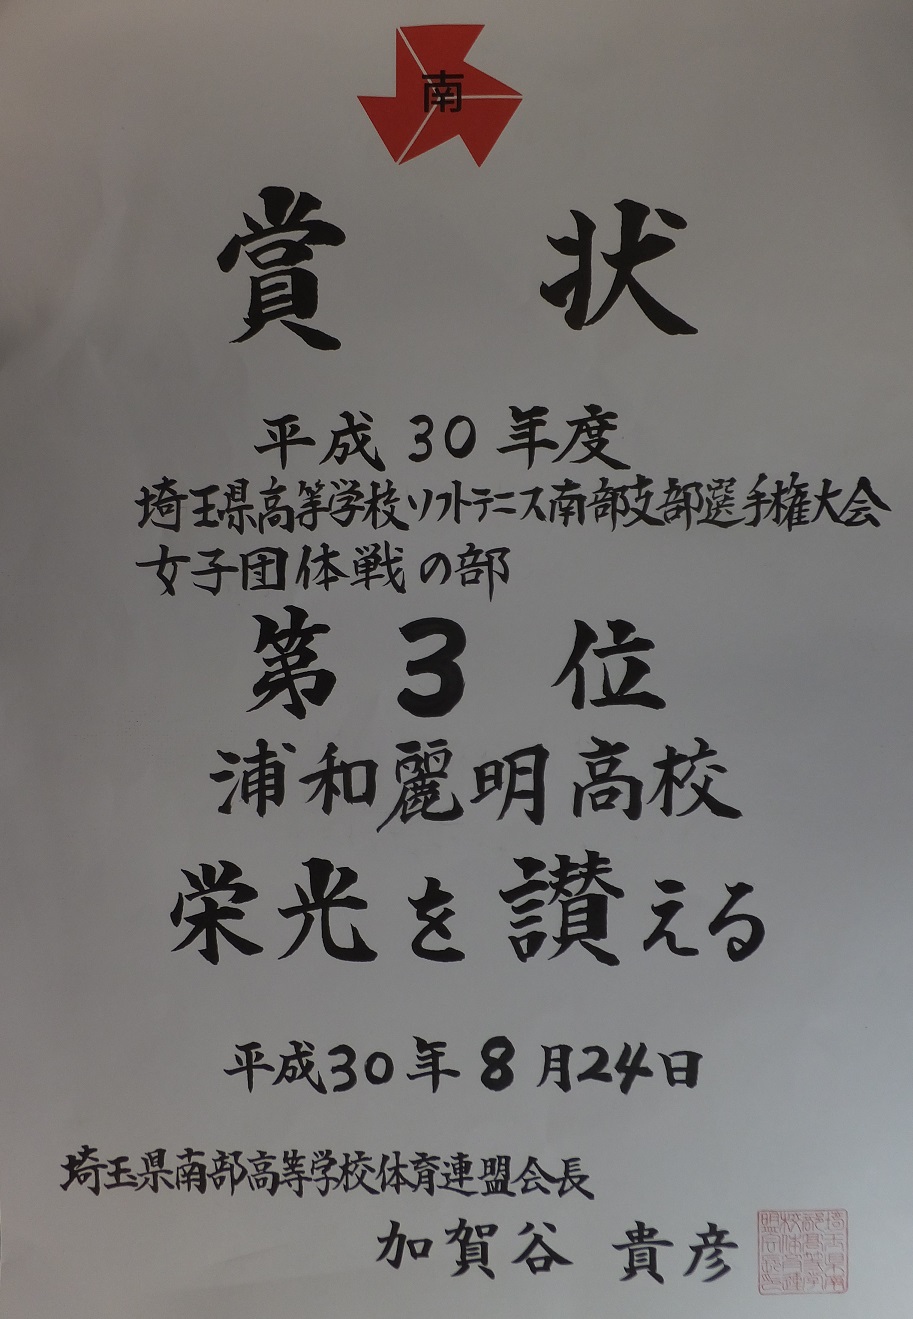 南
賞 状
平成30年度
埼玉県高等学校ソフトテニス南部支部選手権大会
女子団体戦の部
第3位
浦和麗明高校
栄光を讃える
平成30年8月24日
埼玉県南部高等学校体育連盟会長
加賀谷 貴彦